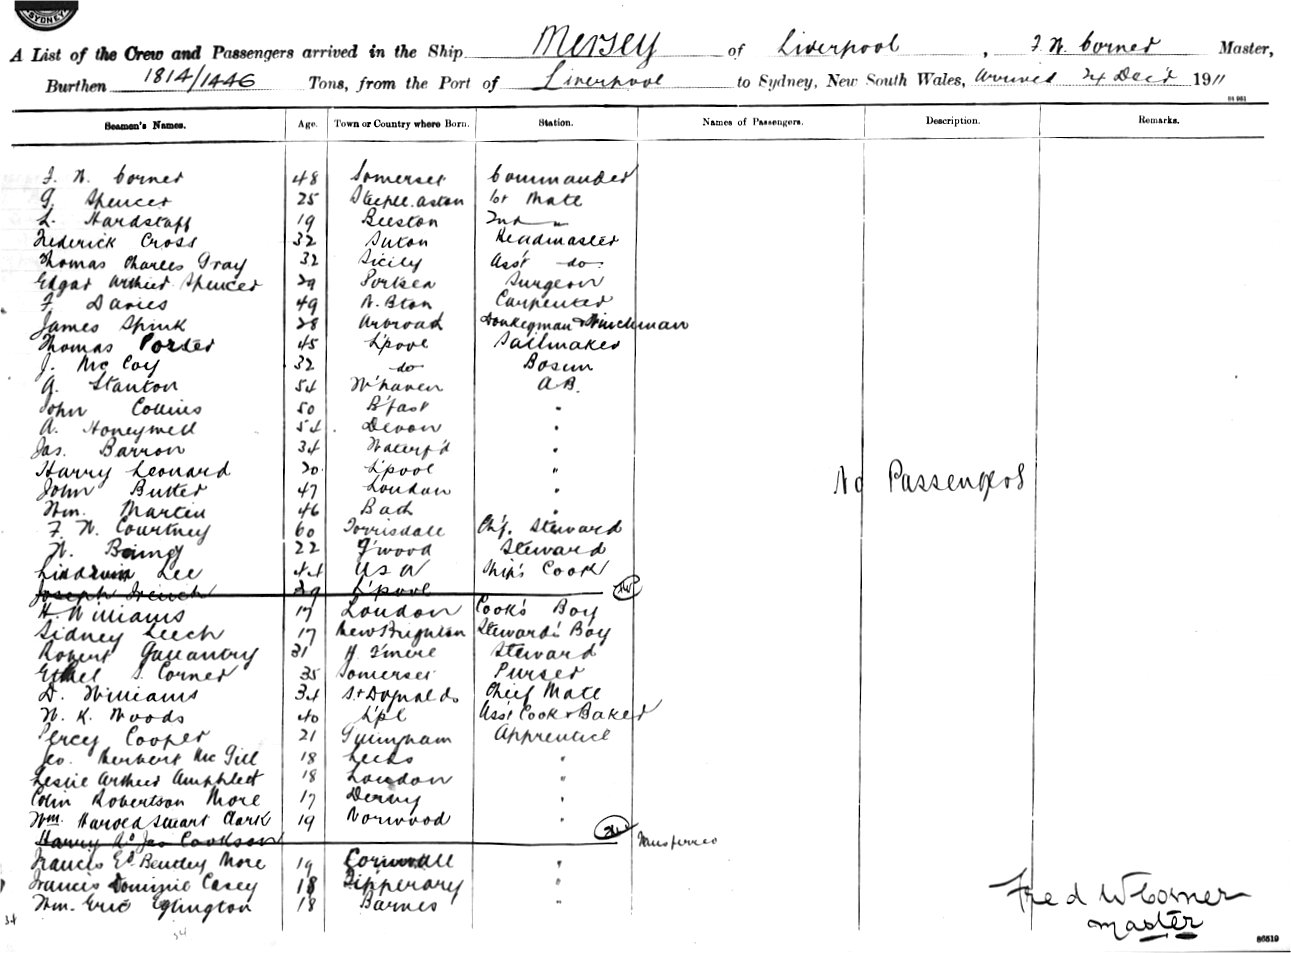 SYDNEY
A List of the Crew and Passengers arrived in the Ship Mersey of Liverpool, F. W. Corner Master,
Burthen 1814/1446 Tons, from the Port of Liverpool to Sydney, New South Wales, Arrived 24 Dec'r 1911
Seamen's Names. Age. Town or Country where Born. Station. Names of Passengers. Description. Remarks.
F. W. Corner 48 Somerset Commander
G. Spencer 25 Steeple.aston 1st Mate
L. Hardstaff 19 Beeston 2nd "
Frederick Cross 32 Suton Headmaster
Thomas Charles Gray 32 Sicily Ass't do
Edgar Arthur Spencer 29 Portsea Surgeon
F. Davies 49 W. Bton Carpenter
James Spink 28 Arbroad Donkeyman & Winchman
Thomas Porter 45 L'pool Sailmaker
J. McCoy 32 do Bosun
A. Stanton 54 W'haven A.B.
John Collins 50 B'fast "
A. Honeywell 54 Devon "
Jas. Barron 34 Waterf'd "
Harry Leonard 20 L'pool "
John Butter 47 London "
Wm. Martin 46 Bath "
No Passengers
F. W. Courtney 60 Torrisdale Ch'f. Steward
W. 22 F'wood Steward
Lee 44 USA Ship's Cook
Joseph French 29 L'pool
H. Williams 17 London Cook's Boy
Sidney Leech 17 New Brighton Steward's Boy
Robert Gallantry 31 Steward
Ethel S. Corner 35 Somerset Purser
D. Williams 34 St Dogmaels Chief Mate
W. K. Woods 40 L'pl Ass't Cook & Baker
Percy Cooper 21 Gillingham Apprentice
Geo. Herbert McGill 18 Leeds "
Leslie Arthur Amphlett 18 London "
Colin Robertson More 17 Derby "
Wm. Harold Stuart Clark 19 Norwood "
Harry Jas Cookson Transferred
Francis Ed Bentley More 19 Cornwall "
Francis Dominic Casey 18 Tipperary "
Wm. Eric Eglington 18 Barnes "
Fred W Corner
Master
34
34
86519